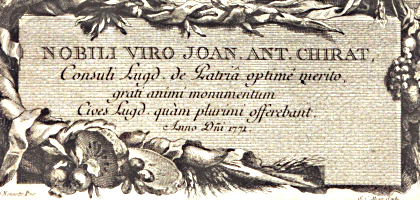 NOBILI VIRO JOAN. ANT. CHIRAT,
Consuli Lugd. de Patriâ optimè merito,
grati animi monumentum
Cives Lugd. quàm plurimi offerebant.
Anno Dñi 1771.